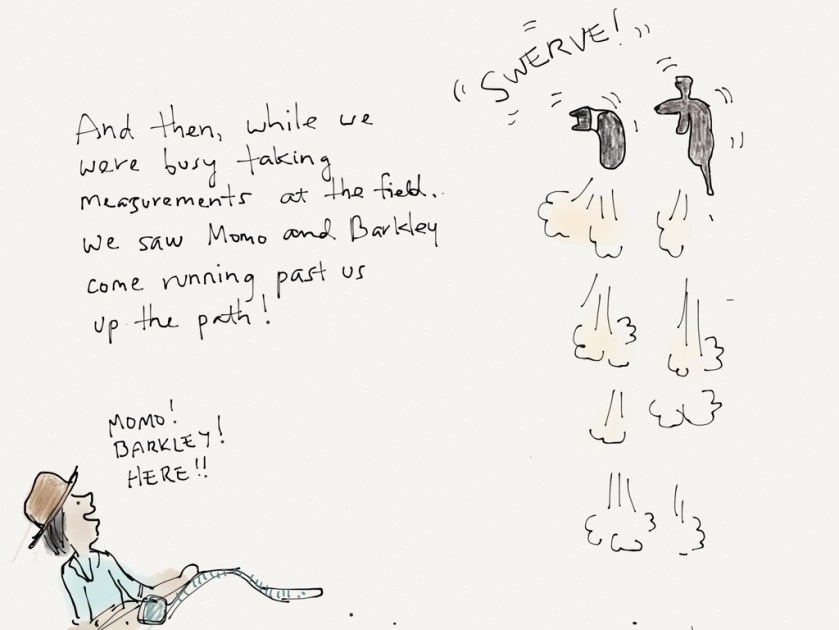 SWERVE!
And then, while we
were busy taking
measurements at the field..
we saw Momo and Barkley
come running past us
up the path!
MOMO!
BARKLEY!
HERE!!